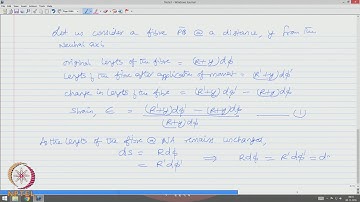 Let us consider a fibre PQ @ a distance, y from the
neutral axis
original length of the fibre = (R+y)dϕ
Length of the fibre after application of moment = (R'+y)dϕ'
change in length of the fibre = (R'+y)dϕ' - (R+y)dϕ
Strain, ε = (R'+y)dϕ' - (R+y)dϕ / (R+y)dϕ (1)
As the length of the fibre @ NA remains unchanged,
ds = Rdϕ
= R'dϕ' ⇒ Rdϕ = R'dϕ' = d